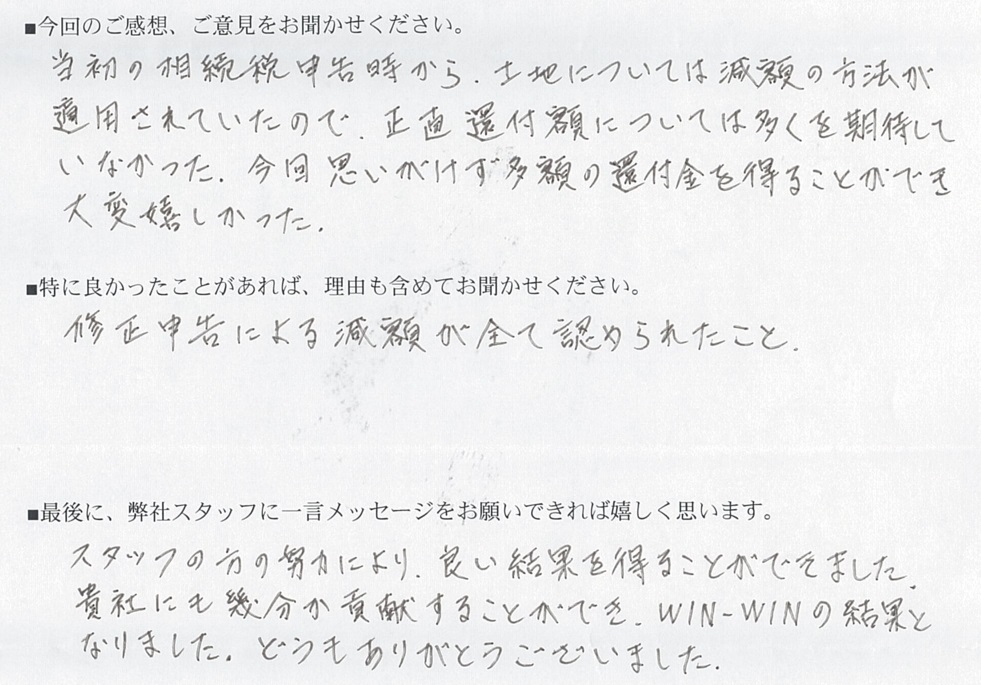 ■今回のご感想、ご意見をお聞かせください。
当初の相続税申告時から、土地については減額の方法が
適用されていたので、正直還付額については多くを期待して
いなかった。今回思いがけず多額の還付金を得ることができ
大変嬉しかった。
■特に良かったことがあれば、理由も含めてお聞かせください。
修正申告による減額が全て認められたこと。
■最後に、弊社スタッフに一言メッセージをお願いできれば嬉しく思います。
スタッフの方の努力により、良い結果を得ることができました。
貴社にも幾分か貢献することができ、WIN-WINの結果と
なりました。どうもありがとうございました。